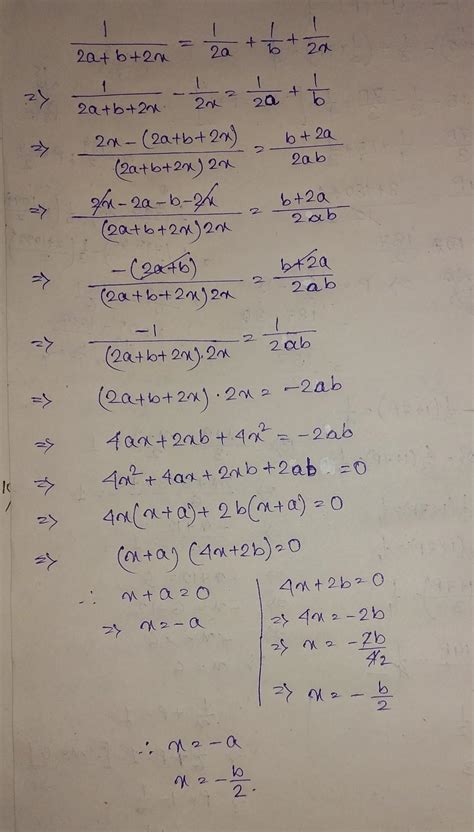 1/(2a+b+2x) = 1/2a + 1/b + 1/2x
=> 1/(2a+b+2x) - 1/2x = 1/2a + 1/b
=> (2x-(2a+b+2x))/((2a+b+2x)2x) = (b+2a)/2ab
=> (2x-2a-b-2x)/((2a+b+2x)2x) = (b+2a)/2ab
=> -(2a+b)/((2a+b+2x)2x) = (b+2a)/2ab
=> -1/((2a+b+2x).2x) = 1/2ab
=> (2a+b+2x).2x = -2ab
=> 4ax+2xb+4x² = -2ab
=> 4x²+4ax+2xb+2ab =0
=> 4x(x+a)+2b(x+a)=0
=> (x+a) (4x+2b)=0
∴ x+a=0
=> x=-a
4x+2b=0
=> 4x=-2b
=> x= -2b/4 2
=> x= -b/2
∴ x=-a
x=-b/2.